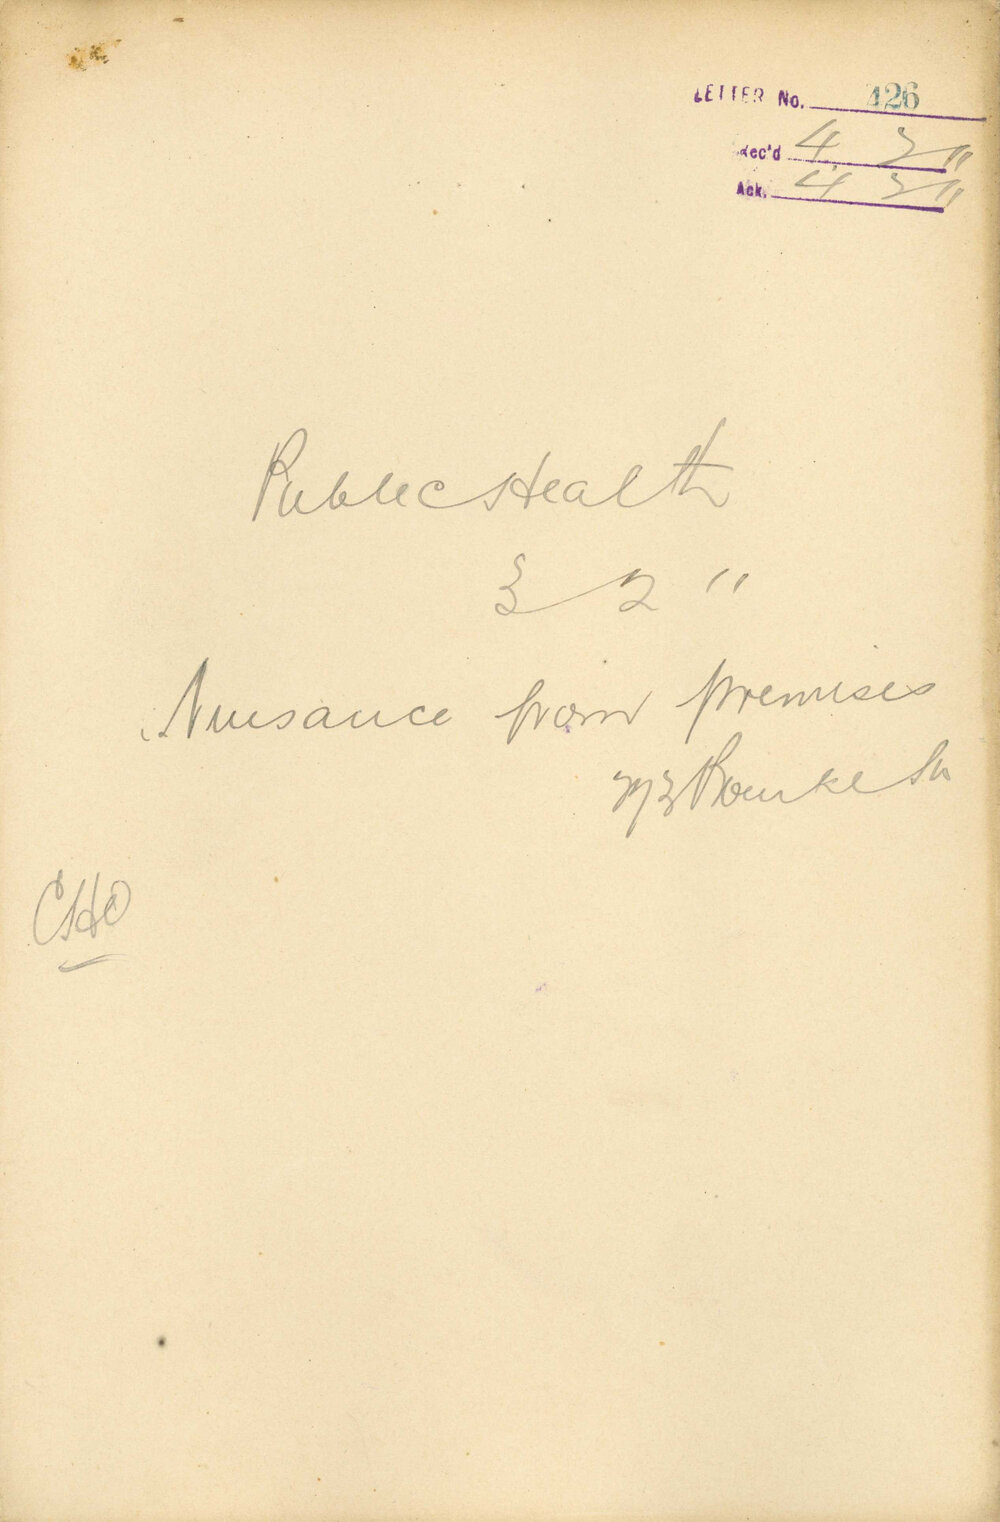 LETTER No. 426
Rec'd 4 2 11
Ack. 4 2 11
Public Health
3 2 11
Nuisance from premises
Rourke St
CHO